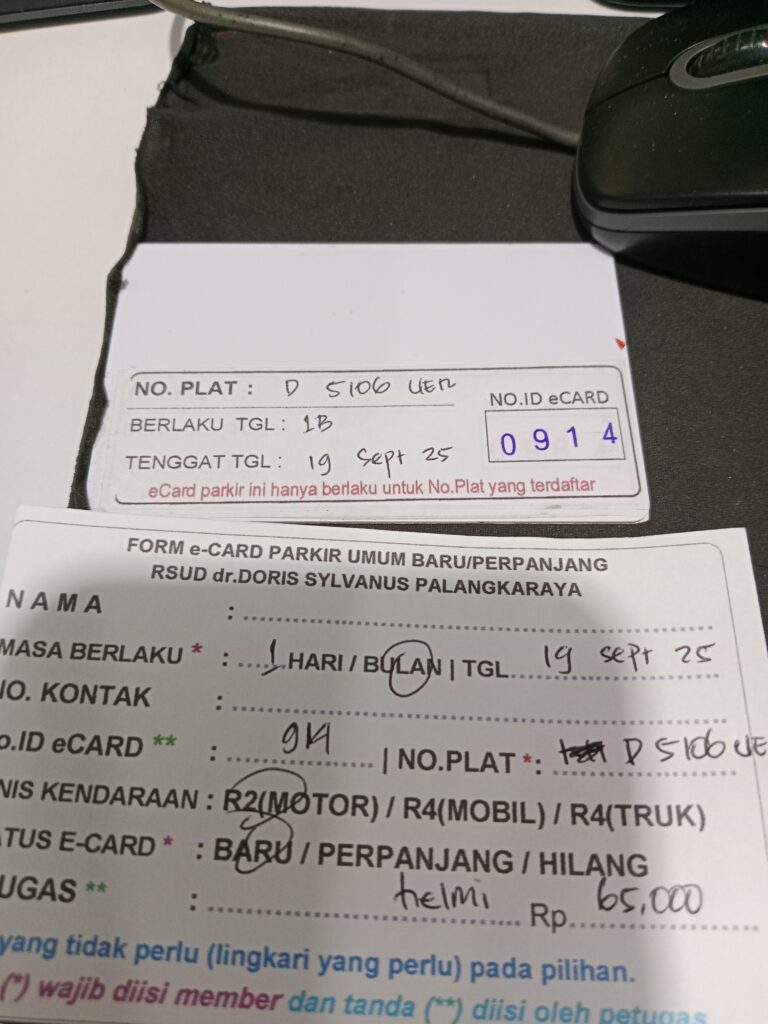 NO. PLAT : D 5106 UER
NO.ID eCARD
BERLAKU TGL : 1B
0914
TENGGAT TGL : 19 Sept 25
eCard parkir ini hanya berlaku untuk No.Plat yang terdaftar
FORM e-CARD PARKIR UMUM BARU/PERPANJANG
RSUD dr.DORIS SYLVANUS PALANGKARAYA
NAMA :
MASA BERLAKU * : 1 HARI / BULAN | TGL 19 sept 25
NO. KONTAK :
o.ID eCARD ** : 914 | NO.PLAT *: D 5106 UE
NIS KENDARAAN : R2(MOTOR) / R4(MOBIL) / R4(TRUK)
ATUS E-CARD * : BARU / PERPANJANG / HILANG
UGAS ** : helmi Rp. 65,000
yang tidak perlu (lingkari yang perlu) pada pilihan.
(*) wajib diisi member dan tanda (**) diisi oleh petugas